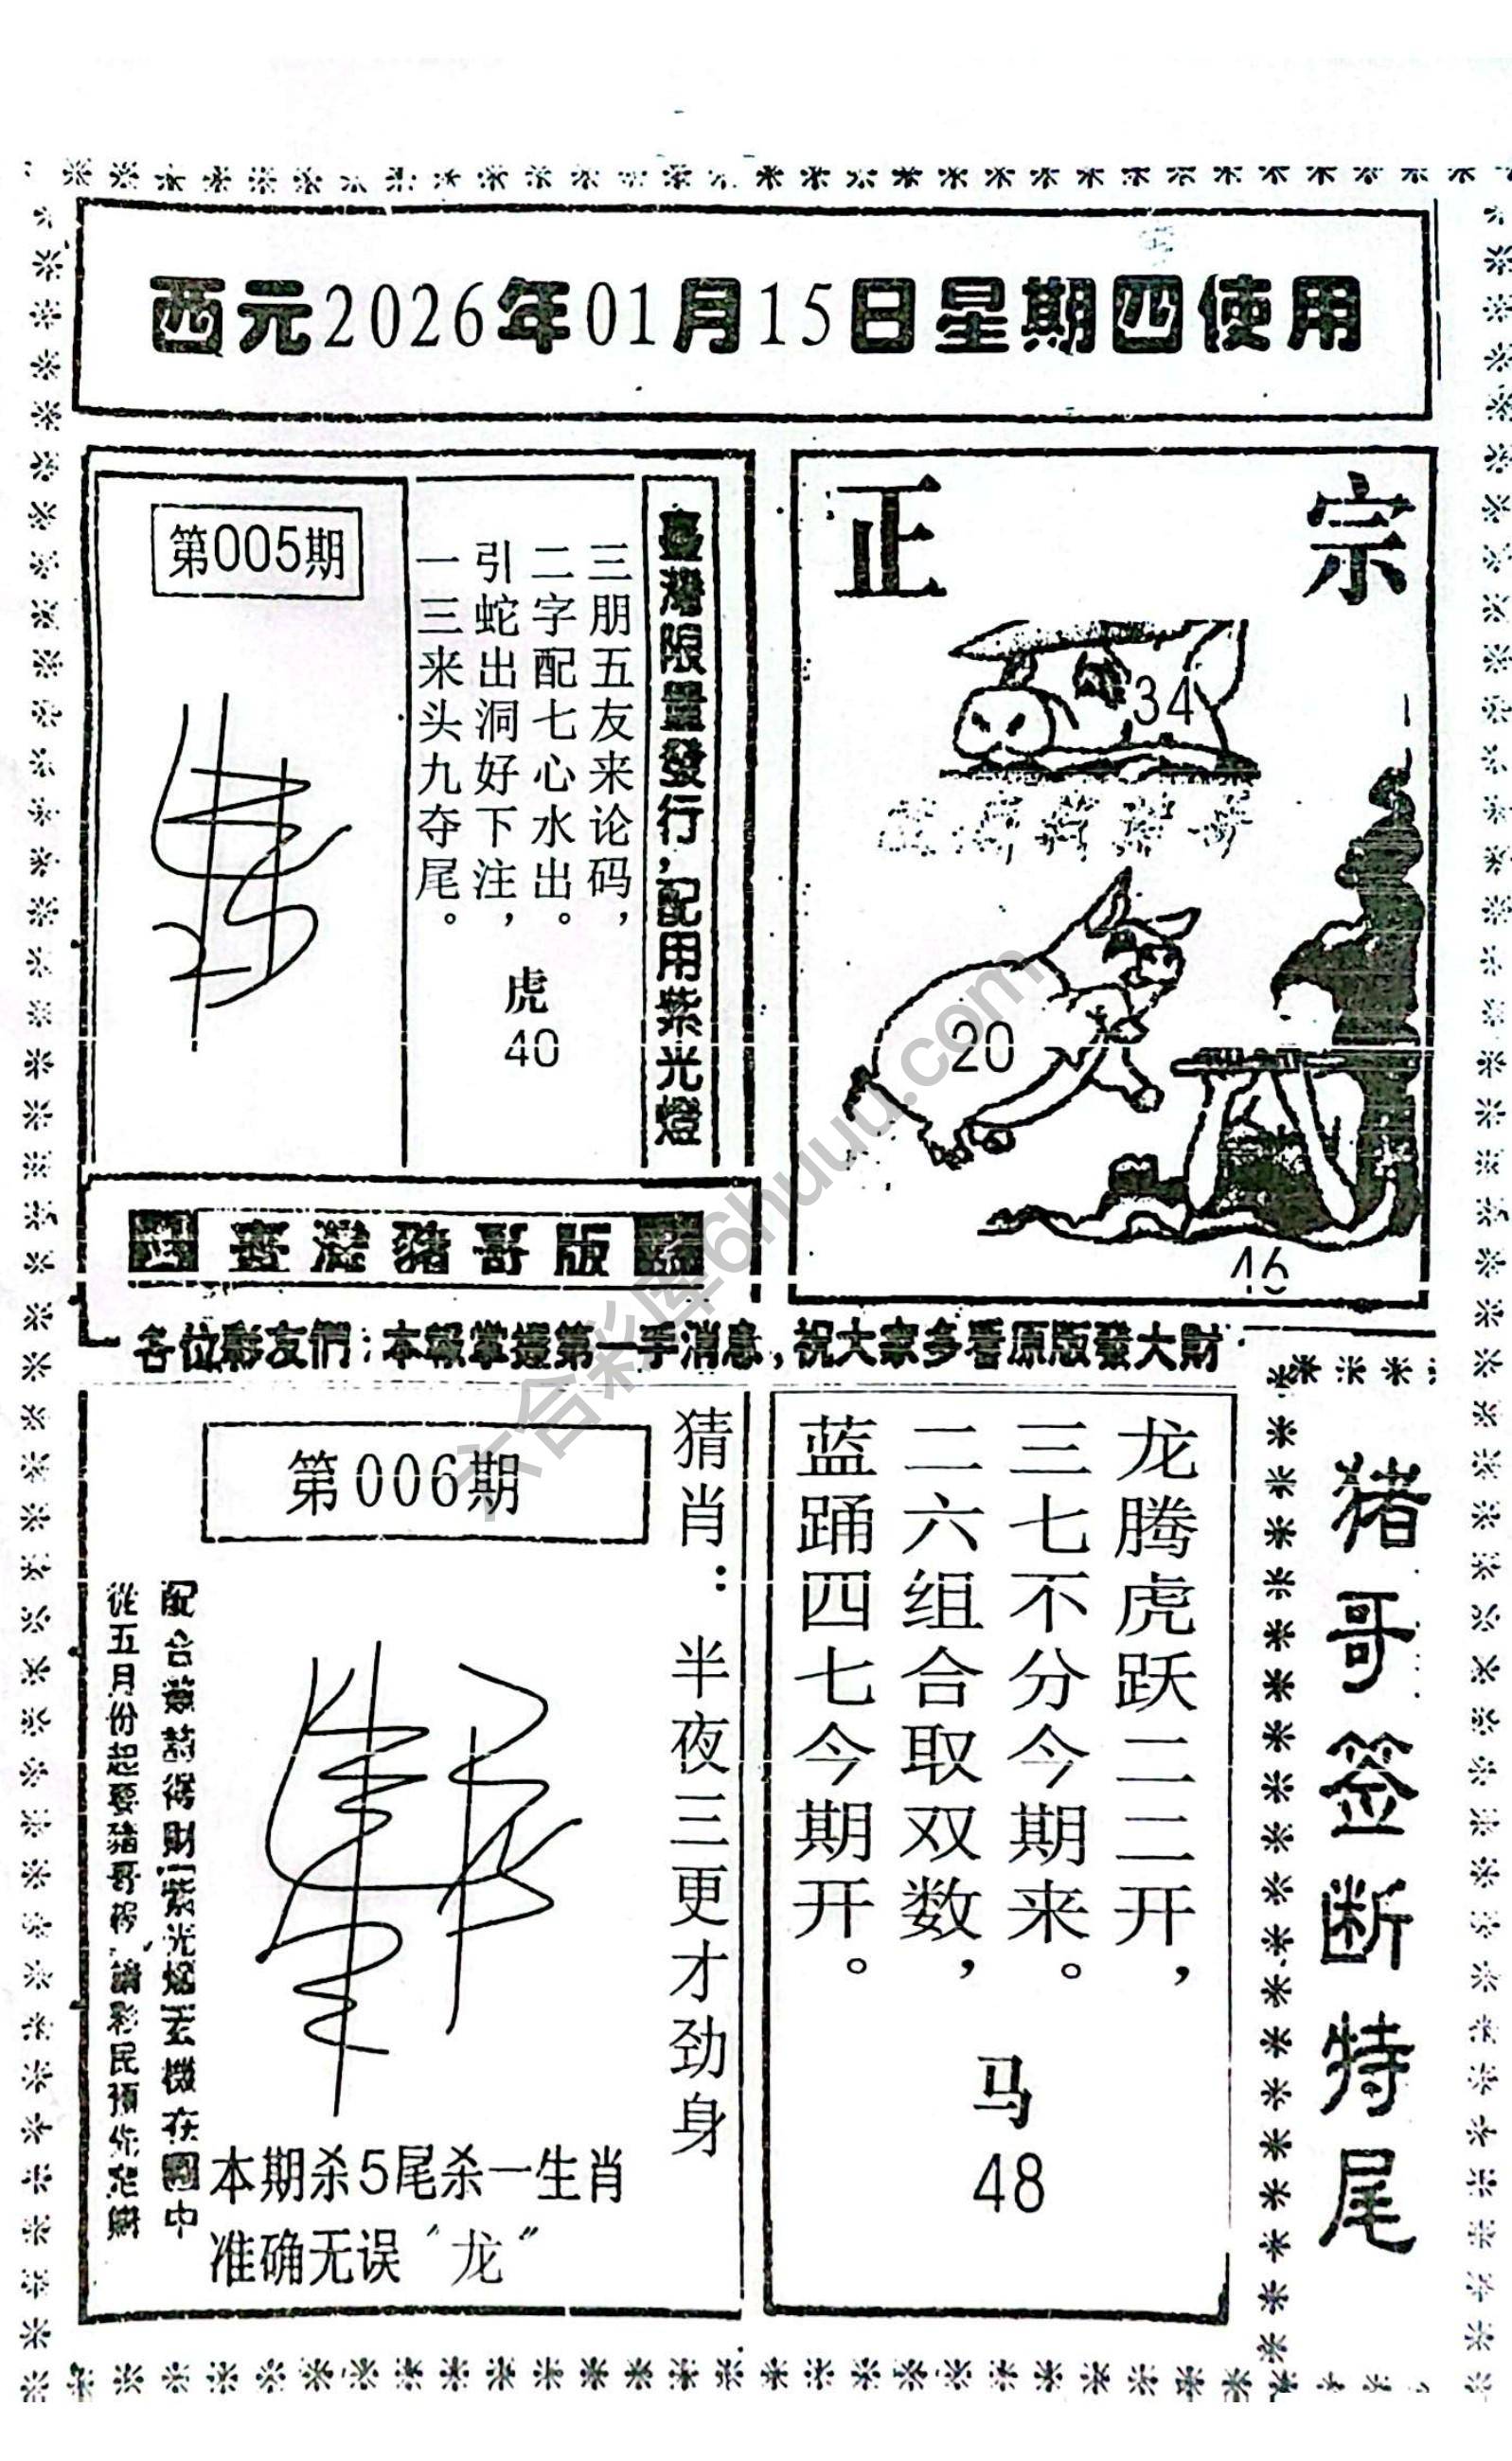 西元2026年01月15日星期四使用
第005期
三朋五友来论码，
二字配七心水出。
引蛇出洞好下注，
一三来头九夺尾。
虎
40
臺灣限量發行，配用紫光燈
正宗
34
20
46
臺灣豬哥版
各位彩友們：本報掌握第一手消息，祝大家多看原版發大財
第006期
猜肖：半夜三更才劲身
本期杀5尾杀一生肖
准确无误“龙”
龙腾虎跃二二开，
三七不分今期来。
二六组合取双数，
蓝踊四七今期开。
马
48
猪哥签断特尾
六合彩库6huuu.com